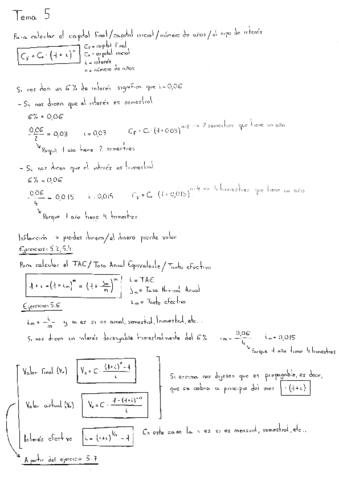 Tema 5
Para calcular el capital final/capital inicial/número de años/el tipo de interés
C_F = C₀ · (1+i)ⁿ
C_F = capital final
C₀ = capital inicial
i = interés
n = número de años
Si nos dan un 6% de interés significa que i=0,06
- Si nos dicen que el interés es semestral
6% = 0,06
0,06/2 = 0,03 i = 0,03 C_F = C₀ · (1+0,03)ⁿ·² → 2 semestres que tiene un año
Porque 1 año tiene 2 semestres
- Si nos dicen que el interés es trimestral
6% = 0,06
0,06/4 = 0,015 i = 0,015 C_F = C₀ · (1+0,015)ⁿ·⁴ → 4 trimestres que tiene un año
Porque 1 año tiene 4 trimestres
Inflacción = pierdes dinero/el dinero pierde valor
Ejercicios: 5.2, 5.4
Para calcular el TAE/Tasa Anual Equivalente/Tanto efectivo
1+i = (1+im)ᵐ = (1+ Jm/m)ᵐ
i = TAE
Jm = Tasa Nominal Anual
im = Tanto efectivo
Ejercicio 5.6
y m es si es anual, semestral, trimestral, etc...
Si nos dicen un interés trimestralmente del 6% 0,06/4 i = 0,015
Porque 1 año tiene 4 trimestres
Valor final (Vn) Vn = C · (1+i)ⁿ-1/i
Valor actual (V₀) V₀ = C · 1-(1+i)⁻ⁿ/i
Si encima nos dijesen que es prepagable, es decir,
que se cobra a principio del mes · (1+i)
Interés efectivo i = (1+i)^(1/n) - 1 En este caso la n es si es mensual, semestral, etc..
A partir del ejercicio 5.7